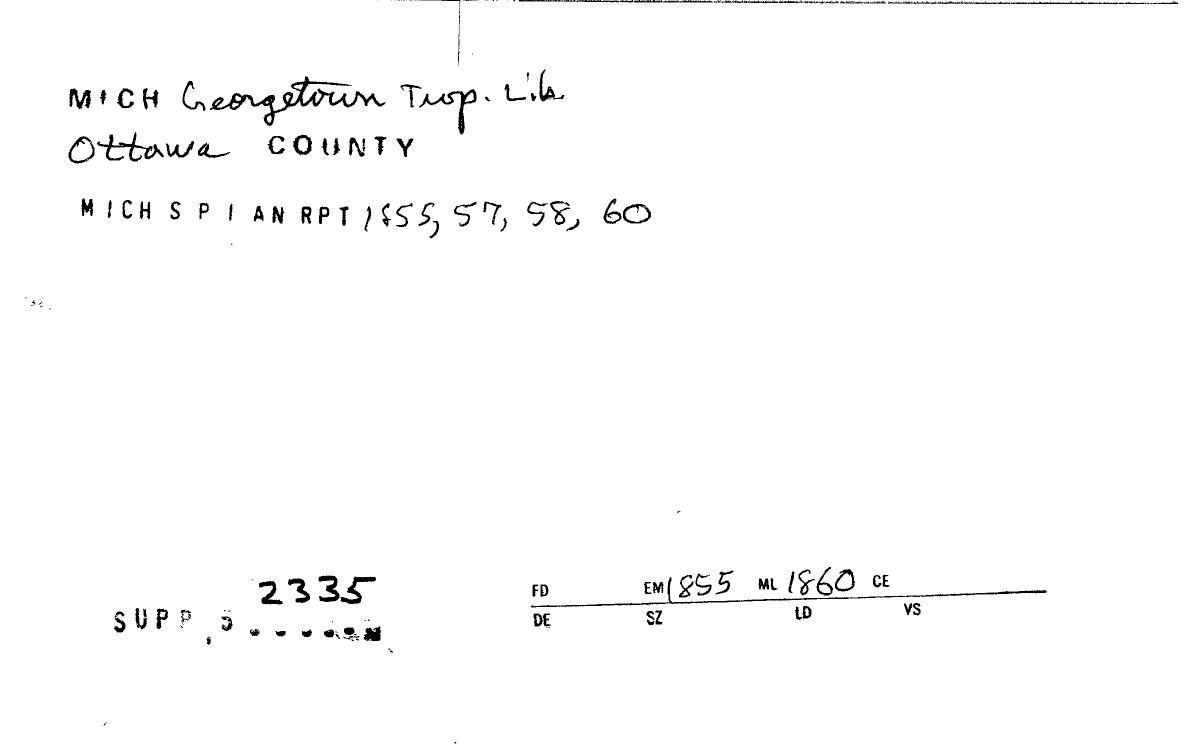 MICH Georgetown Twp. Lib.
Ottawa COUNTY
MICH S P I AN RPT 1855, 57, 58, 60
2335
SUPP, 5......N
FD EM 1855 ML 1860 CE
DE SZ LD VS